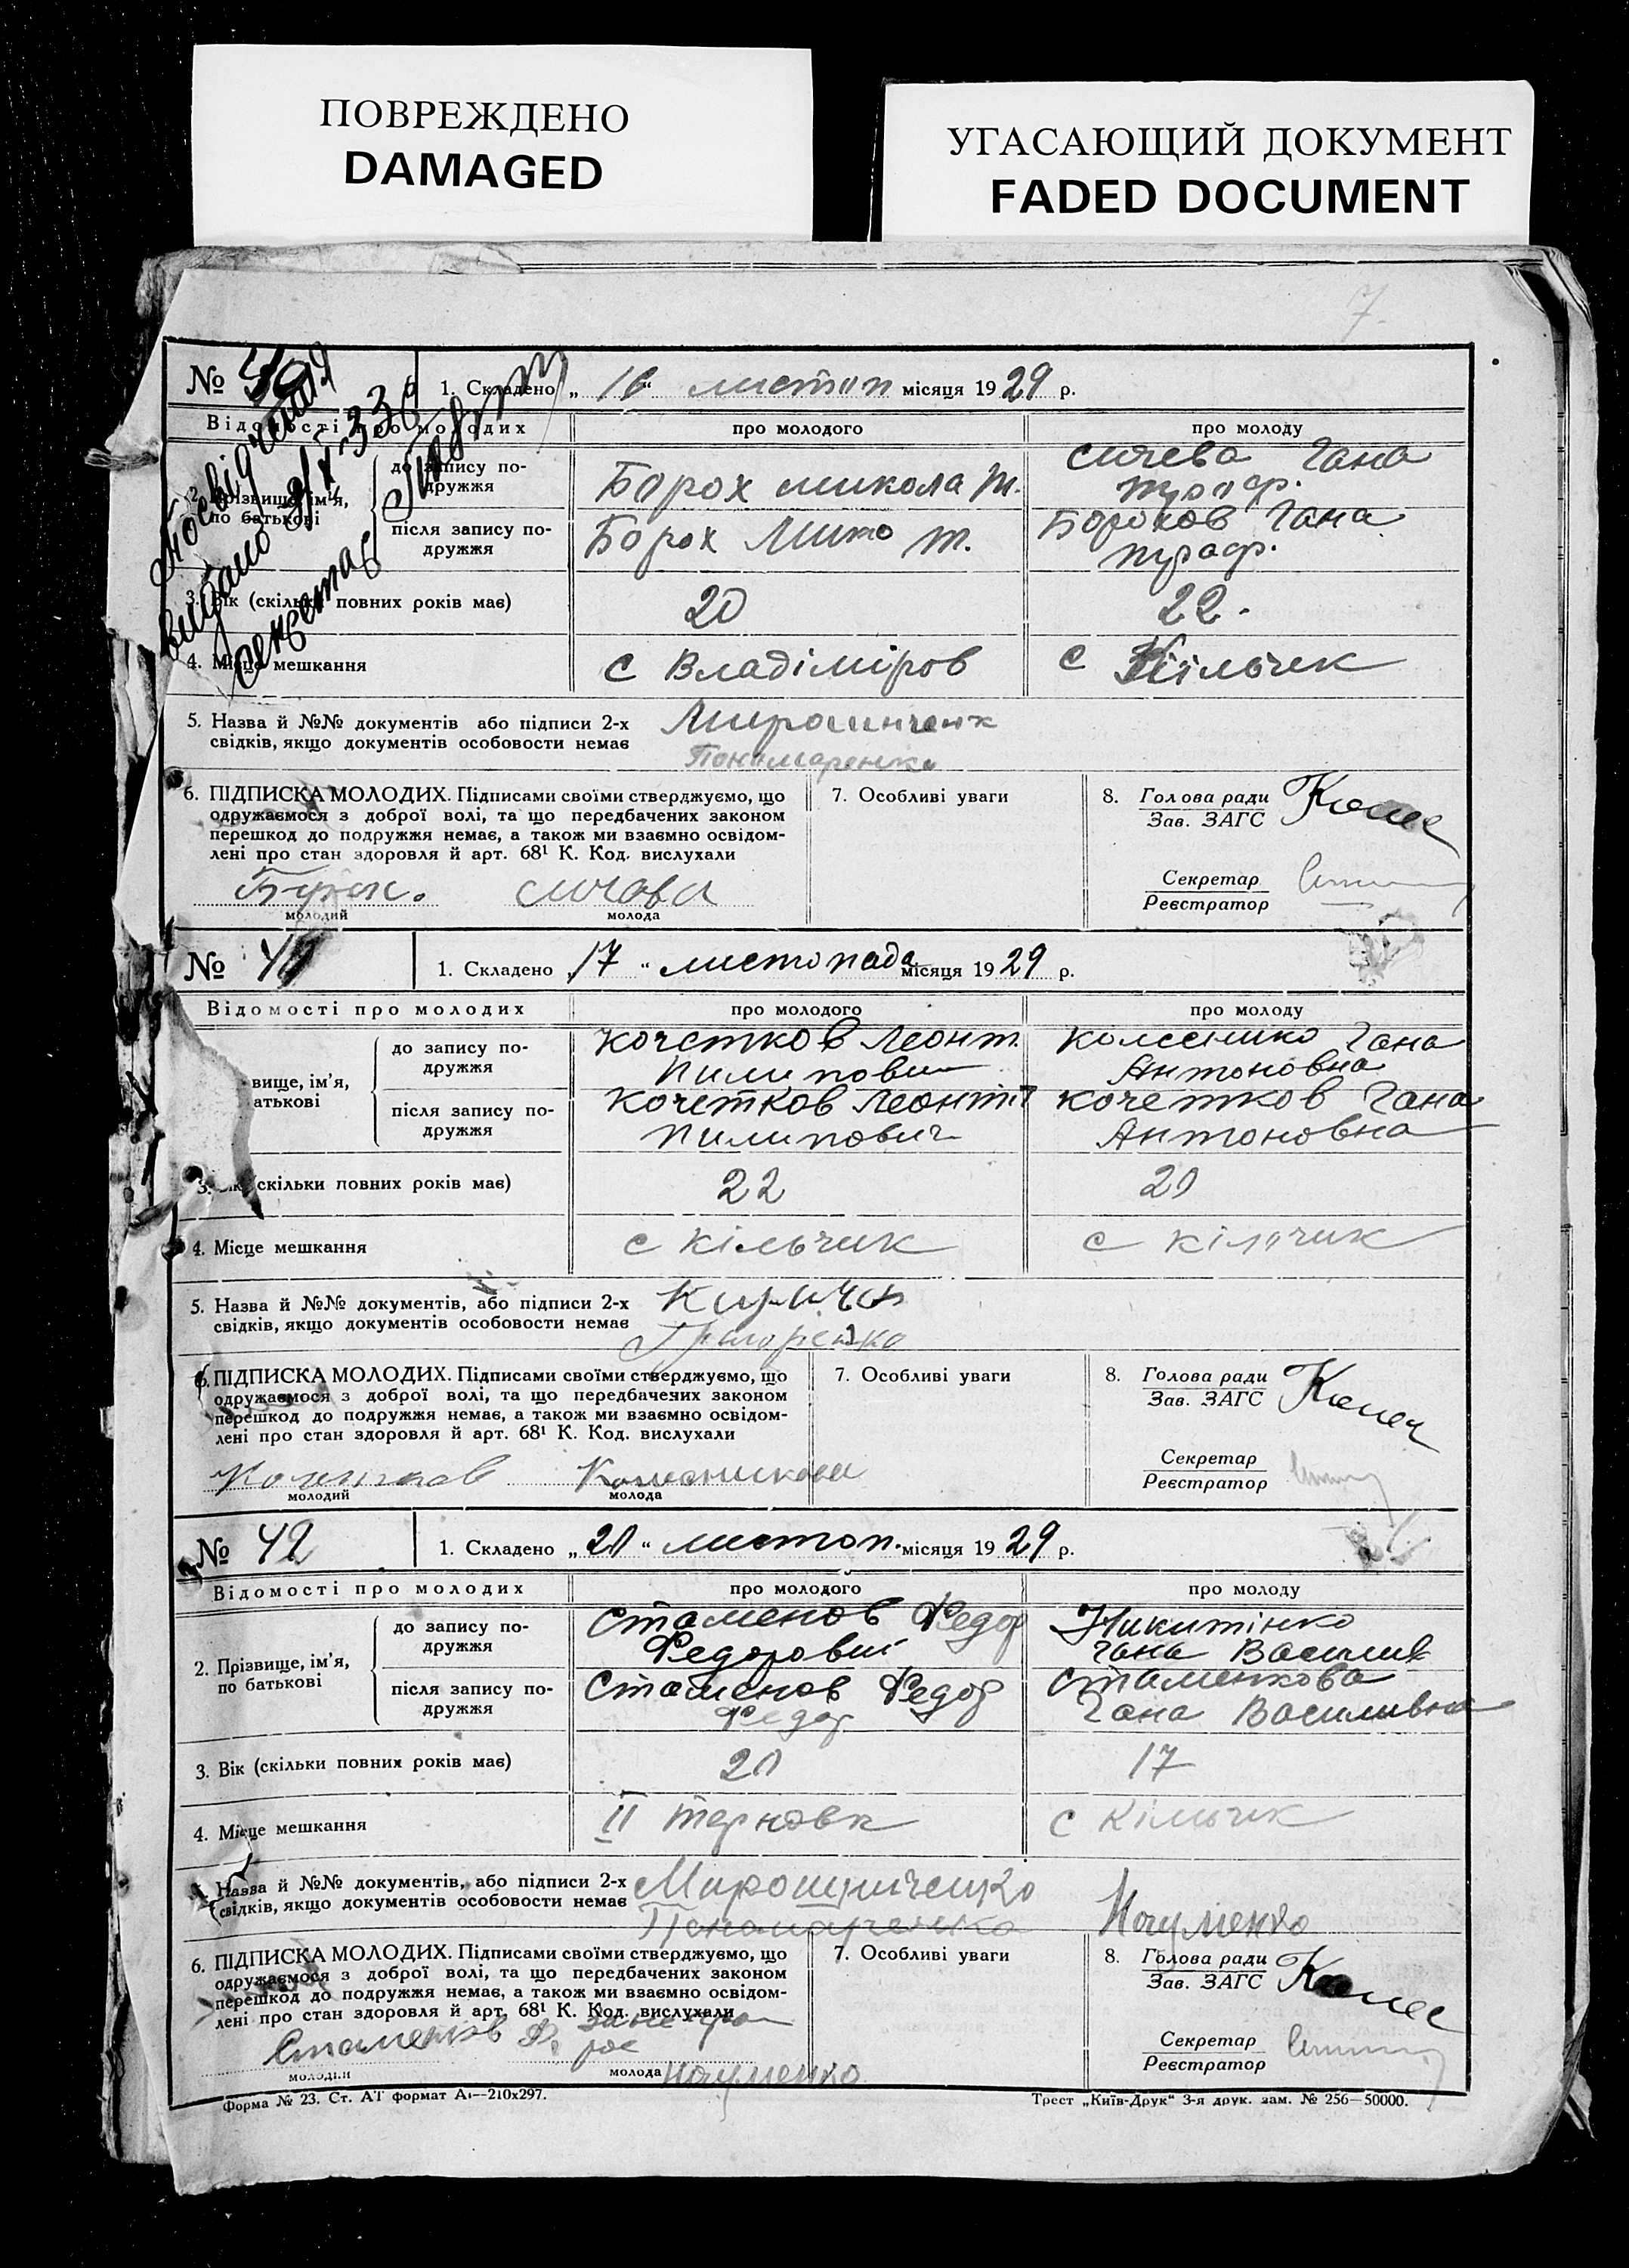 ПОВРЕЖДЕНО
DAMAGED
УГАСАЮЩИЙ ДОКУМЕНТ
FADED DOCUMENT
7
№
1. Складено „ 16 “ листоп місяця 1929 р.
Відомості про молодих
про молодого
про молоду
2. Прізвище, ім'я, по батькові
до запису подружжя
Борох микола т.
Сичева Гана
після запису подружжя
Борох Мико т.
Борохов Гана
3. Вік (скільки повних років має)
20
22.
4. Місце мешкання
с Владіміров
с Кільчек
видано
секретар
5. Назва й №№ документів або підписи 2-х
свідків, якщо документів особовости немає
Мирошнченк
Пономаренко
6. ПІДПИСКА МОЛОДИХ. Підписами своїми стверджуємо, що
одружаємося з доброї волі, та що передбачених законом
перешкод до подружжя немає, а також ми взаємно освідом-
лені про стан здоровля й арт. 68¹ К. Код. вислухали
сичова
молодий
молода
7. Особливі уваги
8. Голова ради
Зав. ЗАГС
Секретар
Реєстратор
№
1. Складено 17 “ листопада місяця 1929 р.
Відомості про молодих
про молодого
про молоду
вище, ім'я,
атькові
до запису по-
дружжя
Кочетков Леонт.
Пилипович
Колеснико Гана
Антоновна
після запису по-
дружжя
Кочетков Леонт
Пилипович
Кочетков Гана
Антоновна
3. Вік (скільки повних років має)
22
20
4. Місце мешкання
с Кільчик
с Кільчик
5. Назва й №№ документів, або підписи 2-х
свідків, якщо документів особовости немає
Григоренко
6. ПІДПИСКА МОЛОДИХ. Підписами своїми стверджуємо, що
одружаємося з доброї волі, та що передбачених законом
перешкод до подружжя немає, а також ми взаємно освідом-
лені про стан здоровля й арт. 68¹ К. Код. вислухали
Колесникова
молодий
молода
7. Особливі уваги
8. Голова ради
Зав. ЗАГС
Секретар
Реєстратор
№ 42
1. Складено „ 20 “ листоп. місяця 1929 р.
Відомості про молодих
про молодого
про молоду
2. Прізвище, ім'я,
по батькові
до запису по-
дружжя
Стаменов Федор
Федорович
Никитінко
Гана Василів
після запису по-
дружжя
Стаменов Федор
Федор
Стаменкова
Гана Василивна
3. Вік (скільки повних років має)
20
17
4. Місце мешкання
II Терновк
с Кільчик
5. Назва й №№ документів, або підписи 2-х
свідків, якщо документів особовости немає
Мирошниченко
Пономаренко
Науменко
6. ПІДПИСКА МОЛОДИХ. Підписами своїми стверджуємо, що
одружаємося з доброї волі, та що передбачених законом
перешкод до подружжя немає, а також ми взаємно освідом-
лені про стан здоровля й арт. 68¹ К. Код. вислухали
Стаменков Ф.
молодий
молода Науменко
7. Особливі уваги
8. Голова ради
Зав. ЗАГС
Секретар
Реєстратор
Форма № 23. Ст. АТ формат А₁—210x297.
Трест „Київ-Друк“ 3-я друк. зам. № 256—50000.